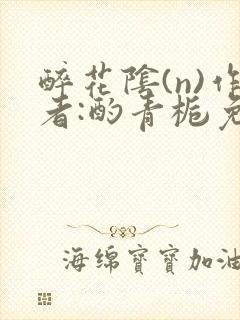 醉花陰(n)作
者:酌青栀免
海绵寶寶加油